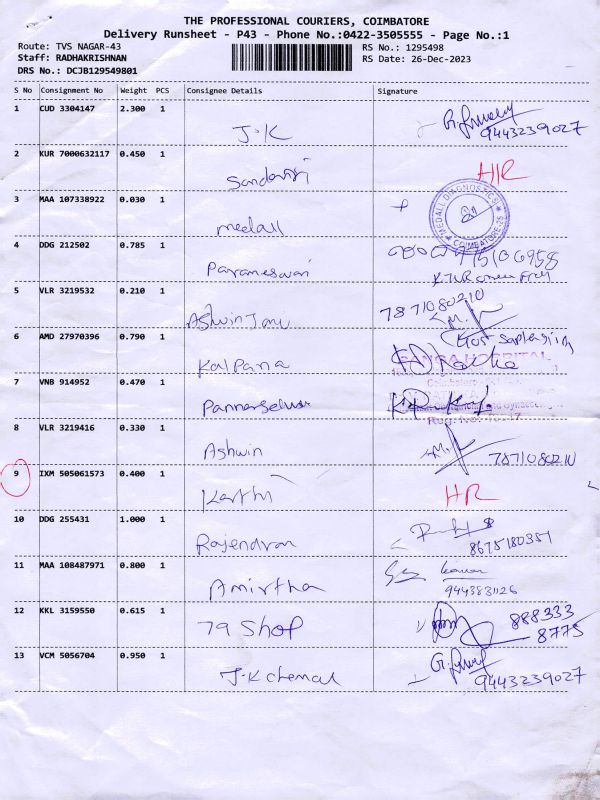 THE PROFESSIONAL COURIERS, COIMBATORE
Delivery Runsheet - P43 - Phone No.:0422-3505555 - Page No.:1
Route: TVS NAGAR-43 RS No.: 1295498
Staff: RADHAKRISHNAN RS Date: 26-Dec-2023
DRS No.: DCJB129549801
S No Consignment No Weight PCS Consignee Details Signature
1 CUD 3304147 2.300 1
J.K 9443239027
2 KUR 7000632117 0.450 1
HR
3 MAA 107338922 0.030 1
medall
MEDALL DIAGNOSTICS COIMBATORE-25
4 DDG 212502 0.785 1
Parameswari
5 VLR 3219532 0.210 1
7871080210
Ashwin
6 AMD 27970396 0.790 1
Kalpana
GANGA HOSPITAL
7 VNB 914952 0.470 1
Pannerselvam
8 VLR 3219416 0.330 1
Ashwin 7871080210
9 IXM 505061573 0.400 1
Karthi HR
10 DDG 255431 1.000 1
Rajendran 8675180351
11 MAA 108487971 0.800 1
Amirtha 9443831126
12 KKL 3159550 0.615 1
79 Shop 888333
8775
13 VCM 5056704 0.950 1
J.K chemal 9443239027